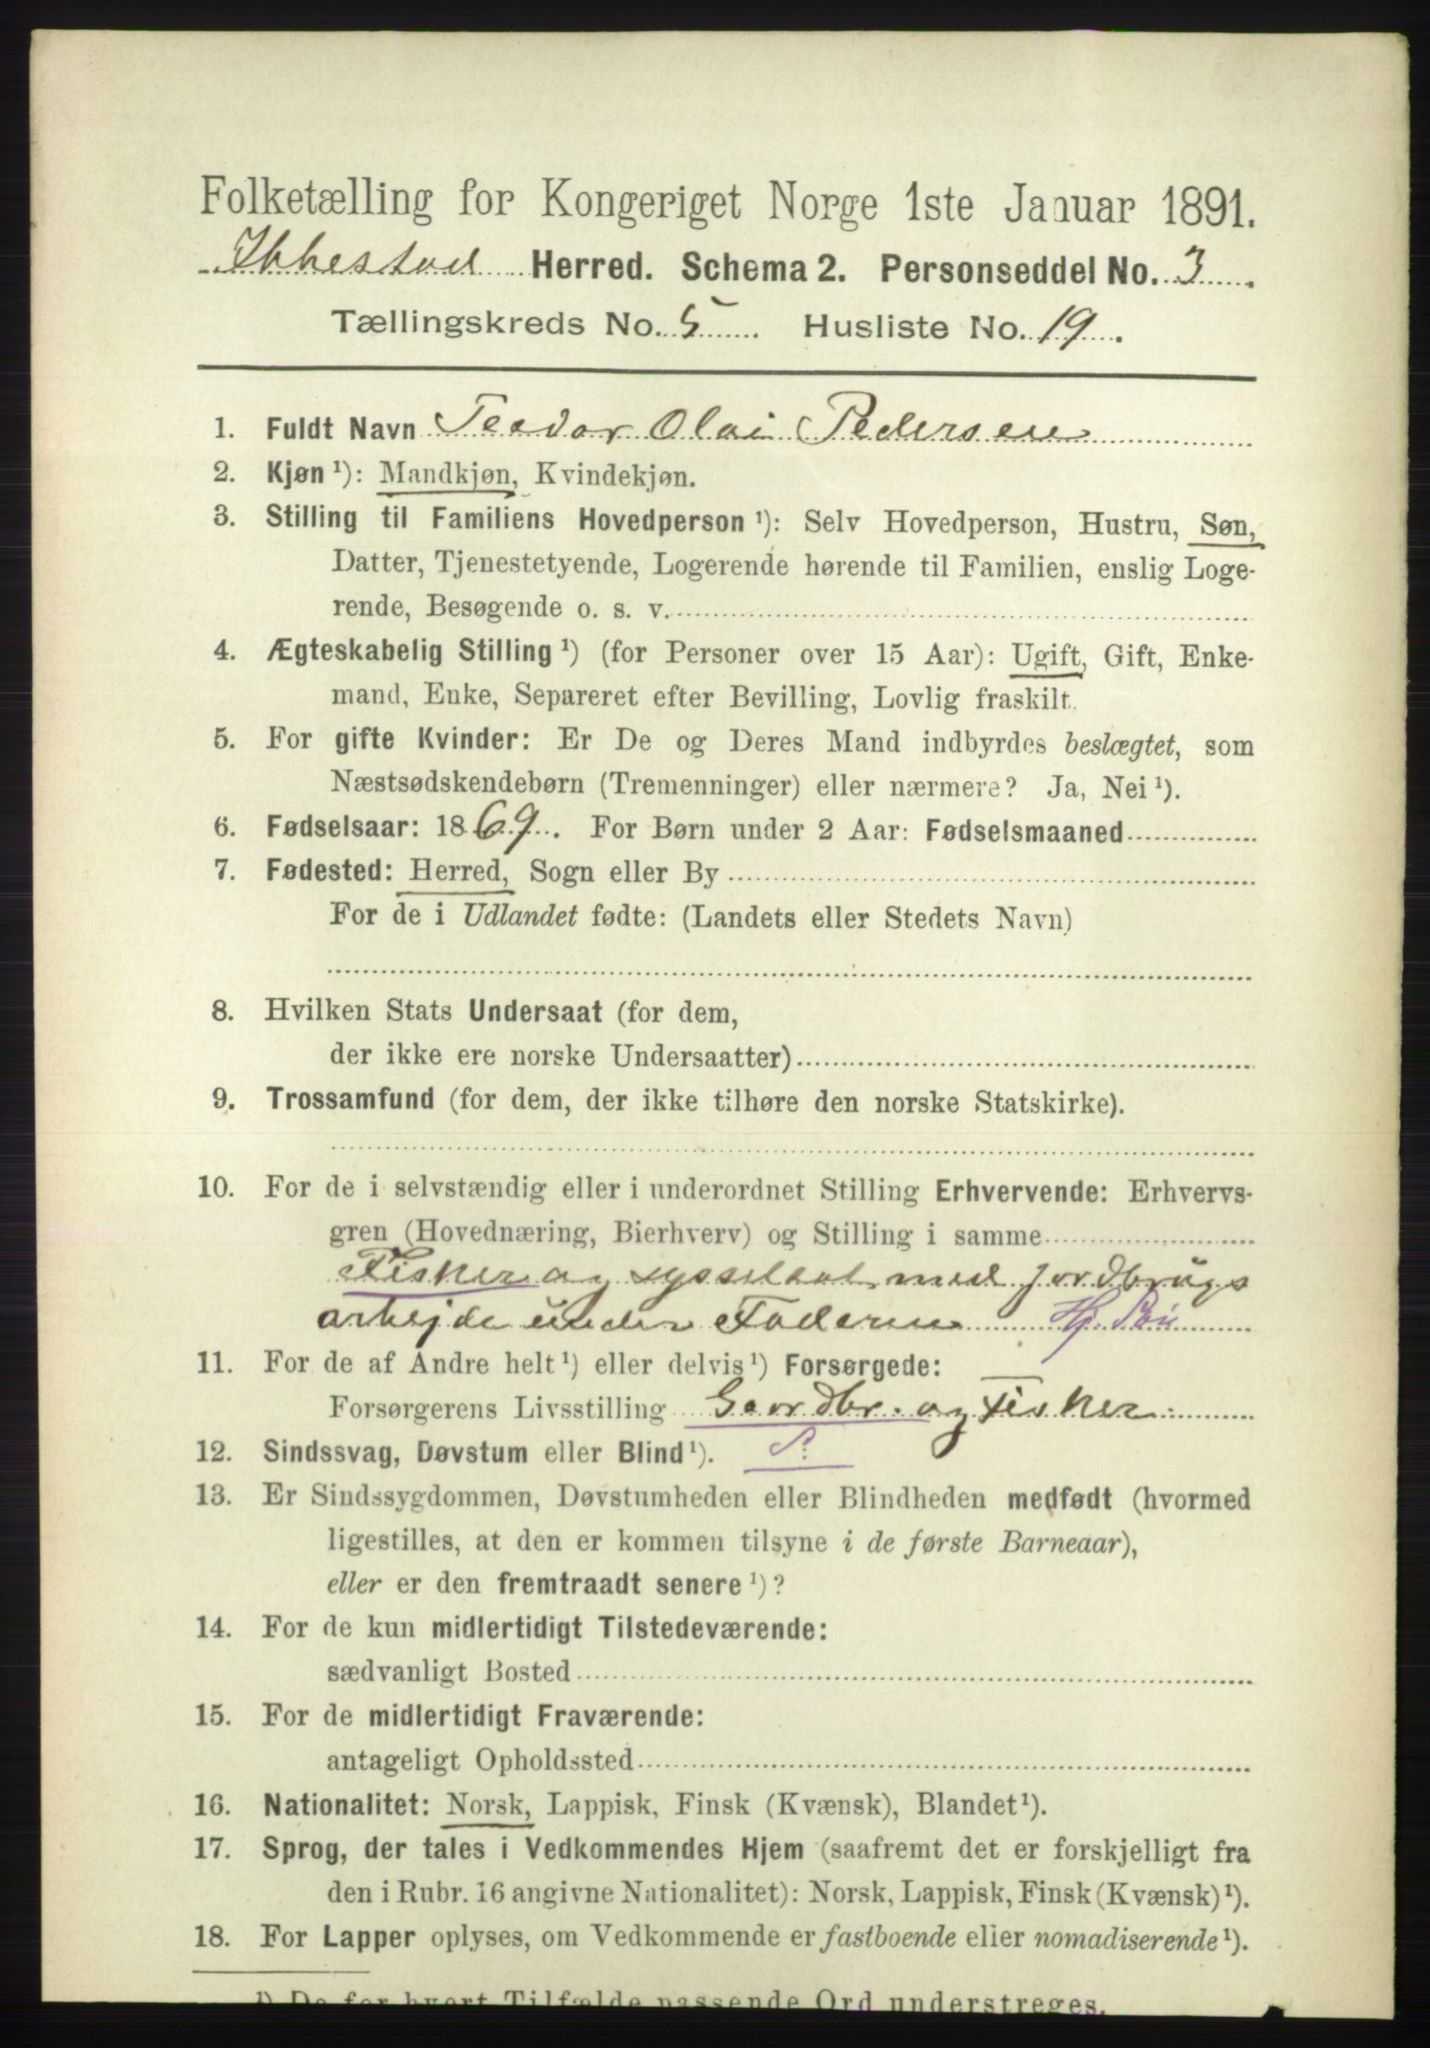 Folketælling for Kongeriget Norge 1ste Januar 1891.
Ibbestad Herred. Schema 2. Personseddel No. 3.
Tællingskreds No. 5. Husliste No. 19.
1. Fuldt Navn Teodor Olai Pedersen
2. Kjøn ¹): Mandkjøn, Kvindekjøn.
3. Stilling til Familiens Hovedperson ¹): Selv Hovedperson, Hustru, Søn,
Datter, Tjenestetyende, Logerende hørende til Familien, enslig Loge-
rende, Besøgende o. s. v.
4. Ægteskabelig Stilling ¹) (for Personer over 15 Aar): Ugift, Gift, Enke-
mand, Enke, Separeret efter Bevilling, Lovlig fraskilt.
5. For gifte Kvinder: Er De og Deres Mand indbyrdes beslægtet, som
Næstsødskendebørn (Tremenninger) eller nærmere? Ja, Nei ¹).
6. Fødselsaar: 1869. For Børn under 2 Aar: Fødselsmaaned
7. Fødested: Herred, Sogn eller By
For de i Udlandet fødte: (Landets eller Stedets Navn)
8. Hvilken Stats Undersaat (for dem,
der ikke ere norske Undersaatter)
9. Trossamfund (for dem, der ikke tilhøre den norske Statskirke).
10. For de i selvstændig eller i underordnet Stilling Erhvervende: Erhvervs-
gren (Hovednæring, Bierhverv) og Stilling i samme
Fisker og sysselsat med jordbrugs
arbejde under Faderen Hj. Søn
11. For de af Andre helt ¹) eller delvis ¹) Forsørgede:
Forsørgerens Livsstilling Gaardbr. og Fisker
12. Sindssvag, Døvstum eller Blind ¹). S.
13. Er Sindssygdommen, Døvstumheden eller Blindheden medfødt (hvormed
ligestilles, at den er kommen tilsyne i de første Barneaar),
eller er den fremtraadt senere ¹)?
14. For de kun midlertidigt Tilstedeværende:
sædvanligt Bosted
15. For de midlertidigt Fraværende:
antageligt Opholdssted
16. Nationalitet: Norsk, Lappisk, Finsk (Kvænsk), Blandet ¹).
17. Sprog, der tales i Vedkommendes Hjem (saafremt det er forskjelligt fra
den i Rubr. 16 angivne Nationalitet): Norsk, Lappisk, Finsk (Kvænsk) ¹).
18. For Lapper oplyses, om Vedkommende er fastboende eller nomadiserende ¹).
¹) De for hvert Tilfælde passende Ord understreges.